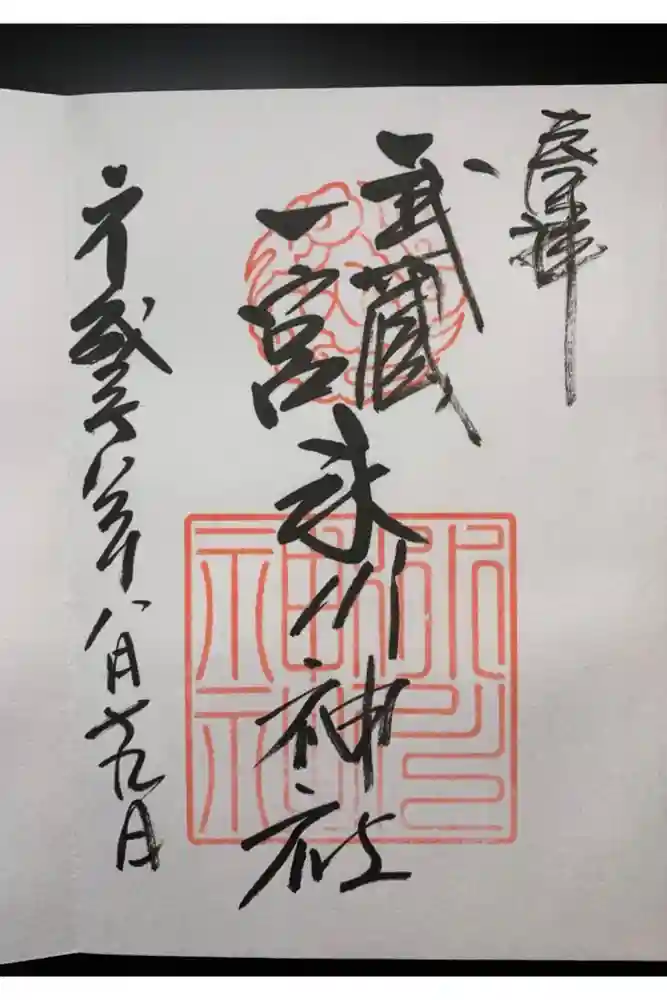 奉拝
武蔵
一宮
氷川神社
平成二十八年八月廿九日
氷川
神社